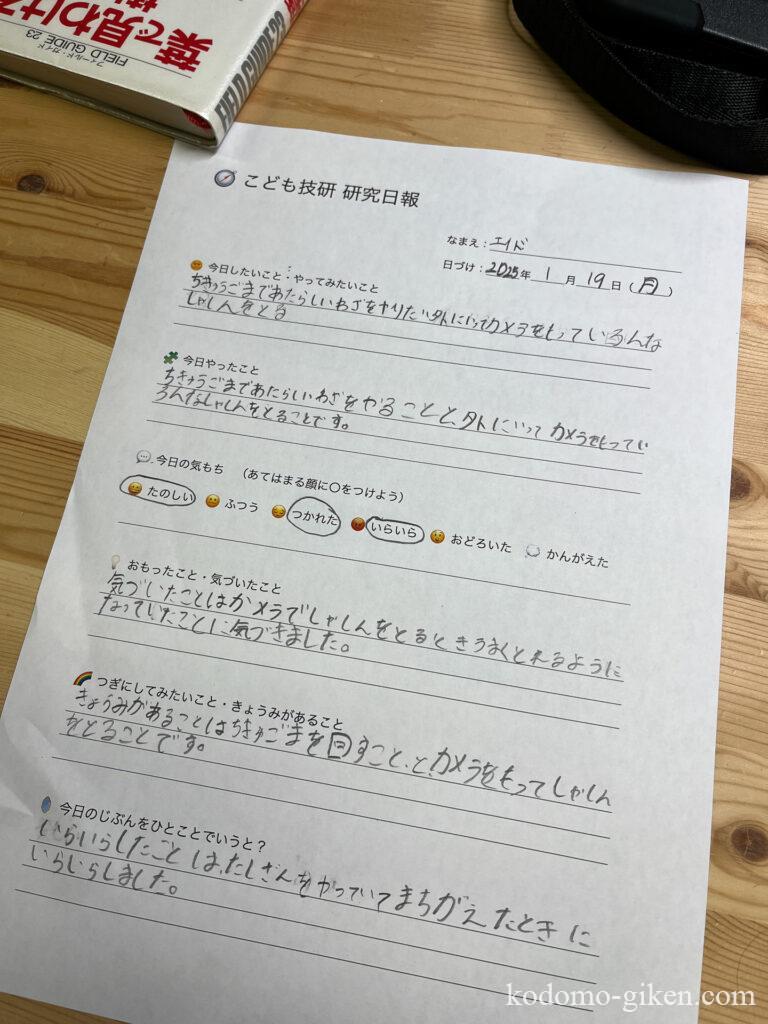 葉で見わける
フィールド・ガイド
FIELD GUIDE 23
FIELD GUIDE 23
こども技研 研究日報
なまえ：エイド
日づけ：2025年 1月 19日(月)
今日したいこと・やってみたいこと
ちきゅうごまであたらしいわざをやりたい外にいってカメラをもっているんな
しゃしんをとる
今日やったこと
ちきゅうごまであたらしいわざをやることと、外にいってカメラをもってい
ろんなしゃしんをとることです。
今日の気もち （あてはまる顔に〇をつけよう）
たのしい ふつう つかれた いらいら おどろいた かんがえた
おもったこと・気づいたこと
気づいたことはカメラでしゃしんをとるときうまくとれるように
なっていたことに気づきました。
つぎにしてみたいこと・きょうみがあること
きょうみがあることはちきゅごまを回すこと、と、カメラをもってしゃしん
をとることです。
今日のじぶんをひとことでいうと？
いらいらしたことは、たしざんをやっていてまちがえたときに
いらいらしました。
kodomo-giken.com